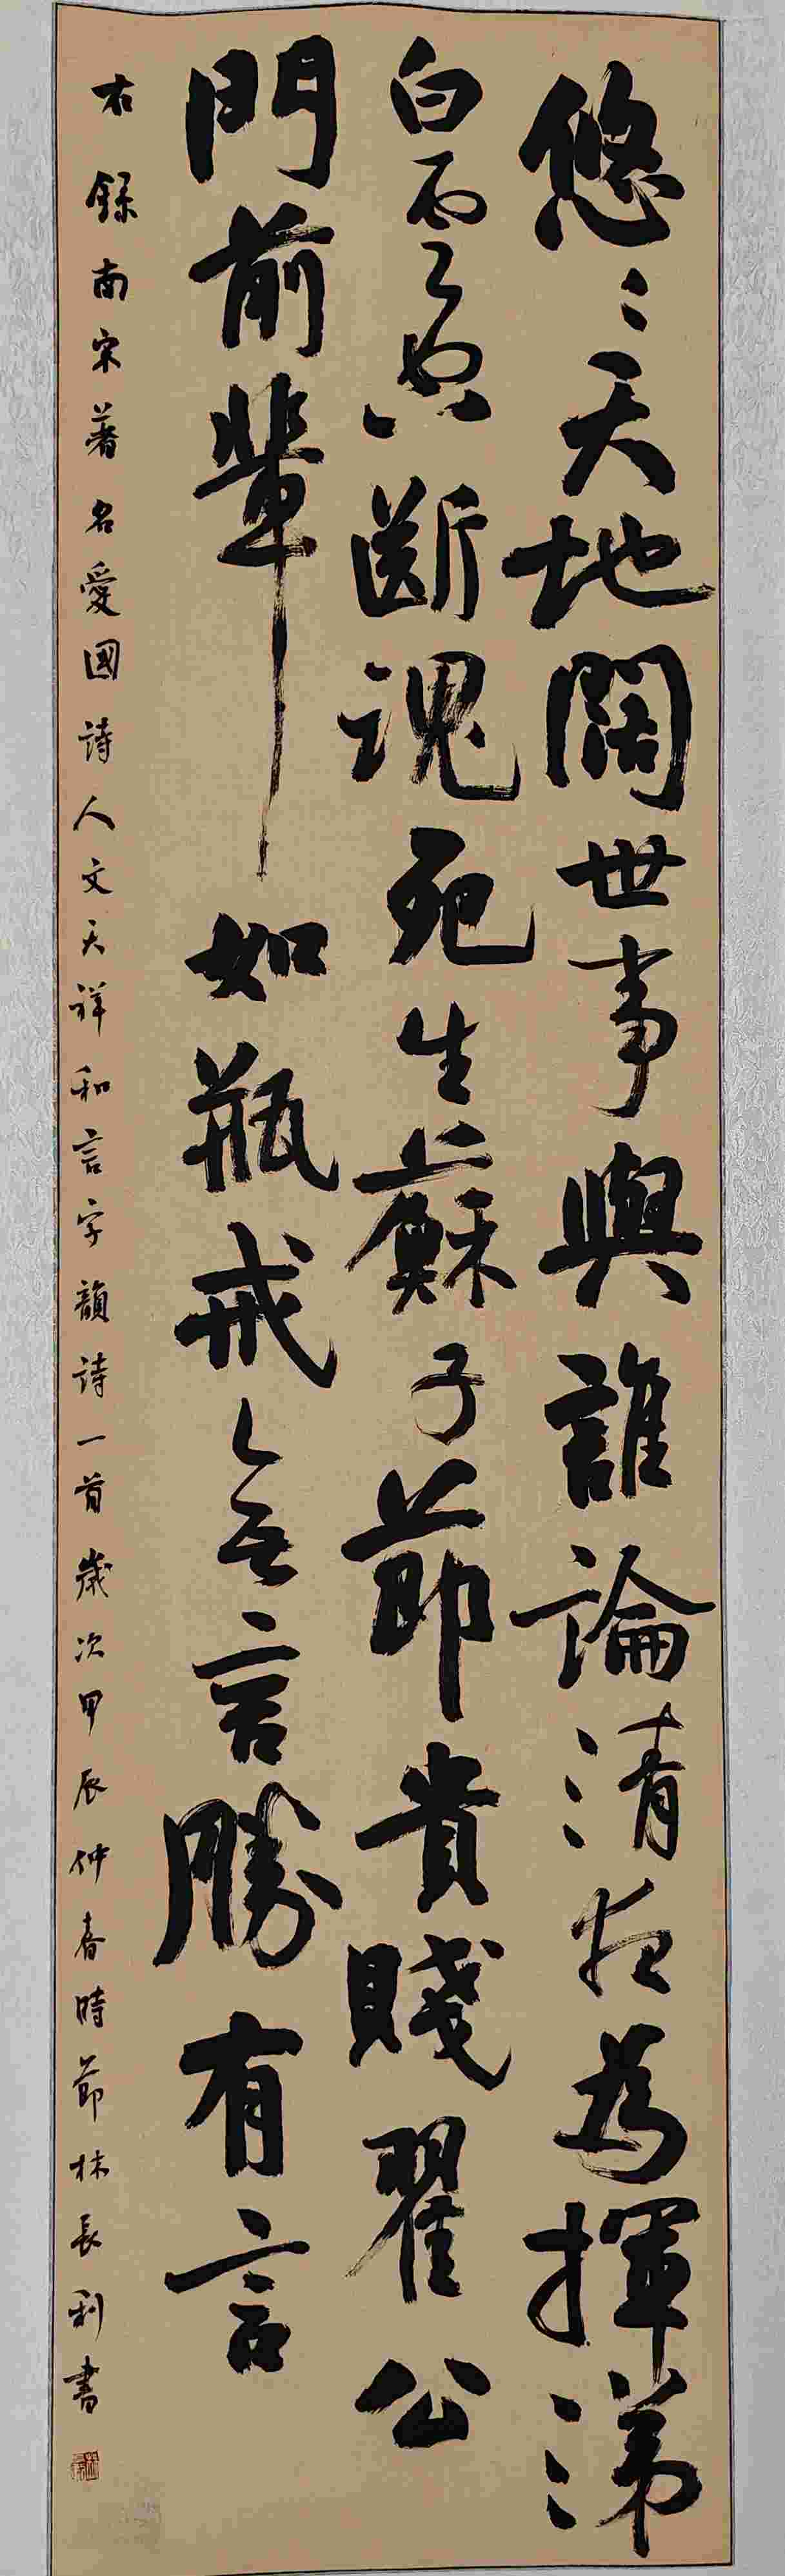 悠〻天地闊世事與誰論清夜為揮涕
白雲空斷魂死生蘇子節貴賤翟公
門前輩如瓶戒無言勝有言
右錄南宋著名愛國詩人文天祥和言字韻詩一首歲次甲辰仲春時節林長利書